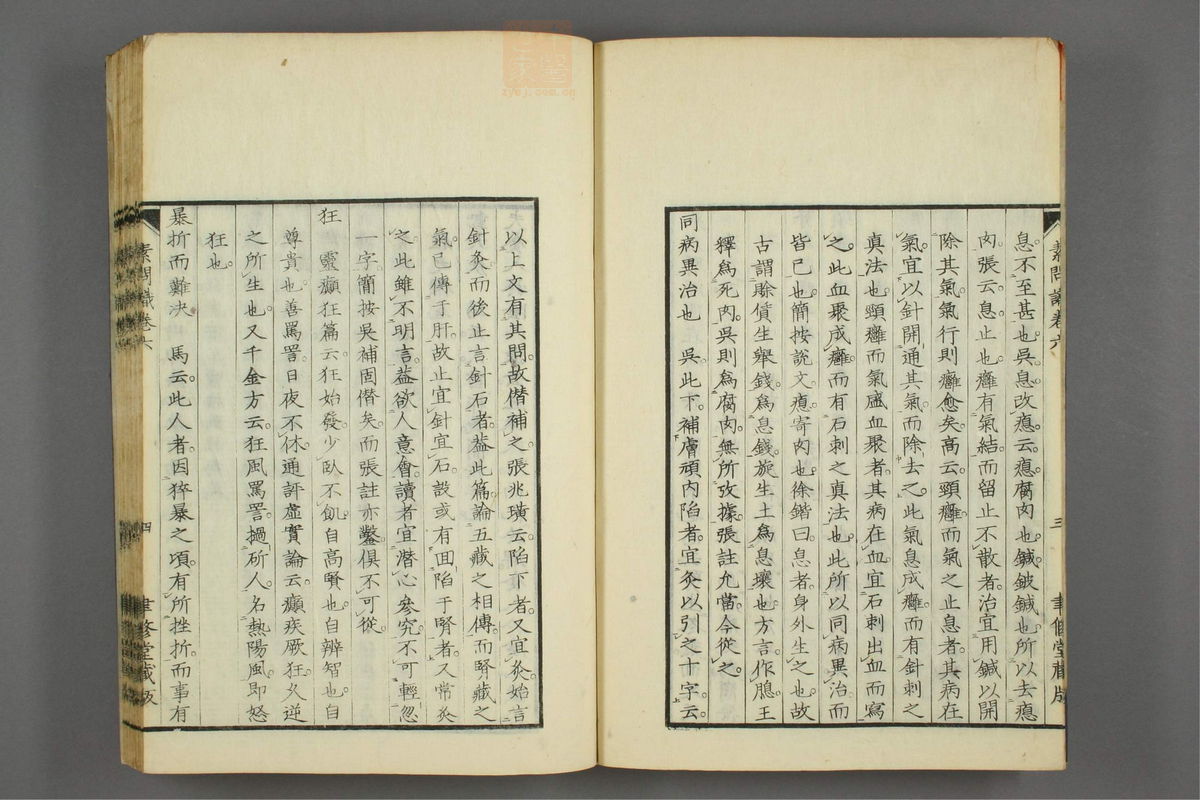 息不至甚也。吳息改瘜。云瘜腐肉也。鍼鈹鍼也。所以去瘜
肉。張云。息止也。癰有氣結而留止不散者。治宜用鍼以開
除其氣。氣行則癰愈矣。高云。頸癰而氣之止息者。其病在
氣。宜以針開通其氣而除去之。此氣息成癰。而有針刺之
真法也。頸癰而氣盛血聚者。其病在血。宜石刺出血而寫
之。此血聚成癰。而有石刺之真法也。此所以同病異治。而
皆已也。簡按說文。瘜寄肉也。徐鍇曰。息者身外生之也。故
古謂賒賃生舉錢。為息錢。旋生土為息壤也。方言作膇。王
釋為死肉。吳則為腐肉。無所攷據。張註允當。今從之。
同病異治也　吳此下。補膚頑內陷者。宜灸以引之十字。云。
素問識卷六
三
聿修堂藏版
以上文有其問。故僭補之。張兆璜云。陷下者。又宜灸。始言
針灸。而後止言針石者。葢此篇論五藏之相傳。而腎藏之
氣。已傳于肝。故止宜針宜石。設或有回陷于腎者。又常灸
之。此雖不明言。葢欲人意會。讀者宜潛心參究。不可輕忽
一字。簡按吳補固僭矣。而張註亦鑿。俱不可從。
狂　靈癲狂篇云。狂始發。少臥不飢。自高賢也。自辨智也。自
尊貴也。善罵詈。日夜不休。通評虛實論云。癲疾厥狂。久逆
之所生也。又千金方云。狂風罵詈。撾斫人。名熱陽風。即怒
狂也。
暴折而難決　馬云。此人者。因猝暴之頃。有所挫折。而事有
素問識卷六
四
聿修堂藏版